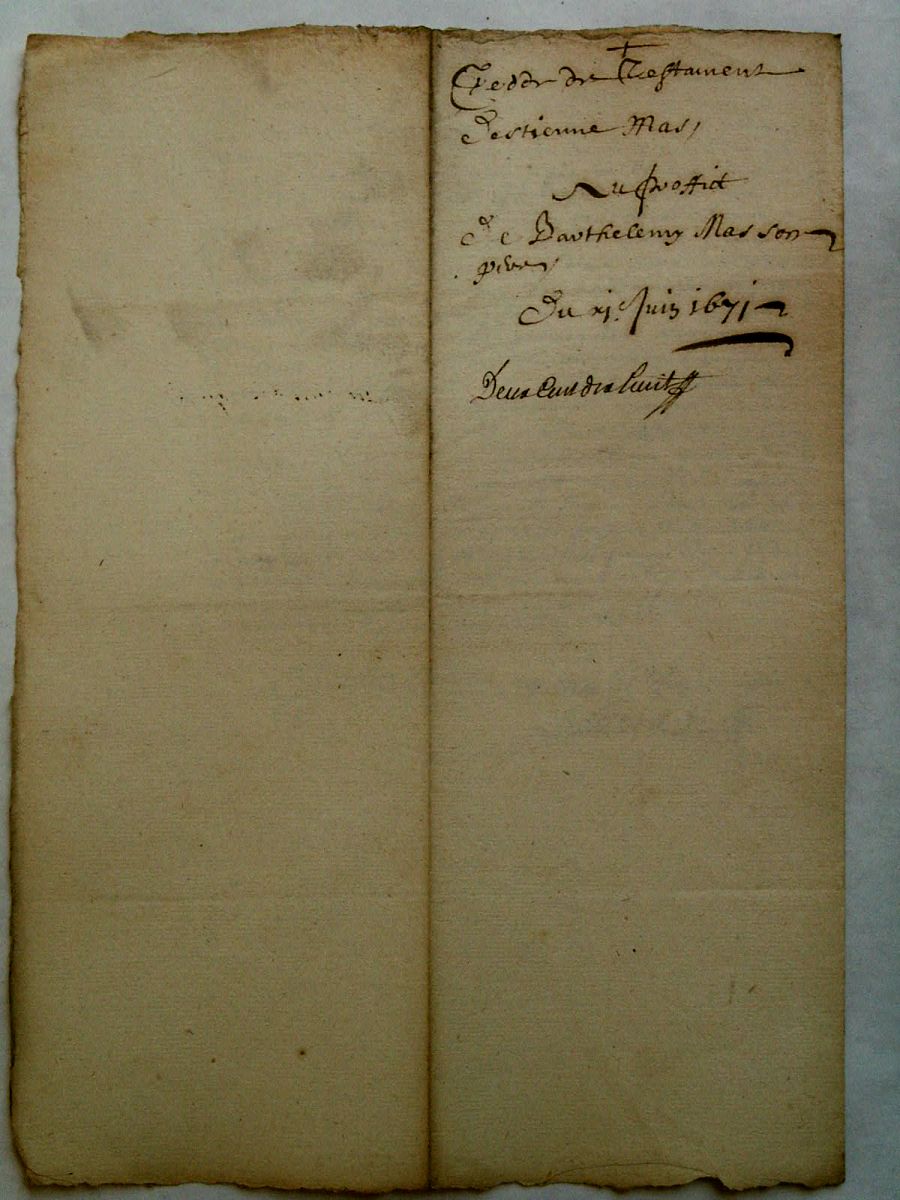 Cedde de Testament
d'estienne Mas
Au proffict
de Barthelemy Mas son
pere
Du xj.e Juin 1671
Deux Cent dix huit